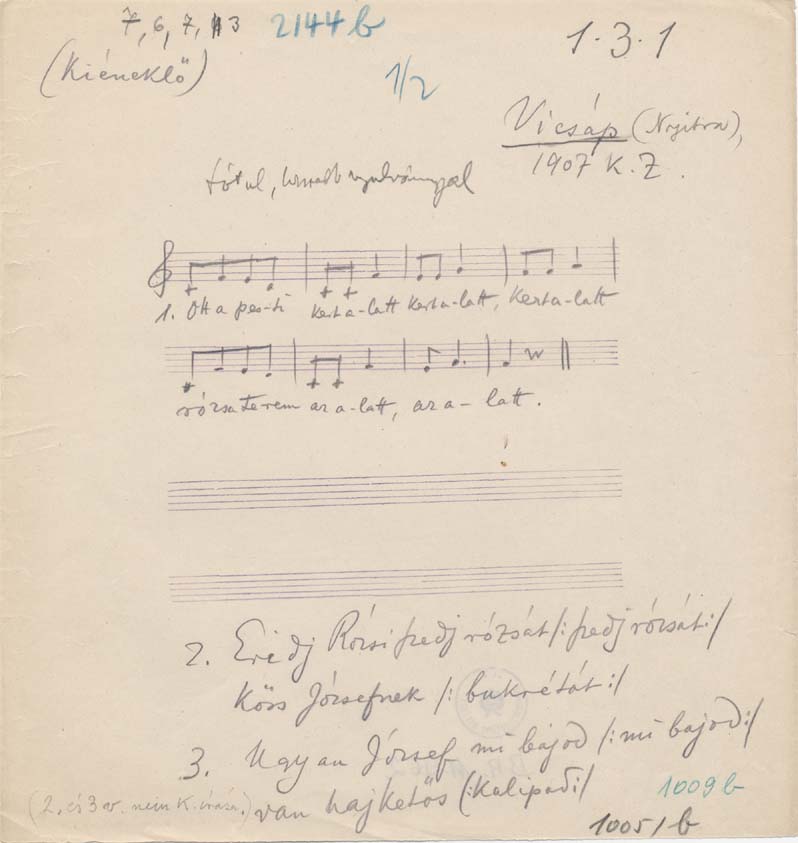 7, 6, 7, 3 2144 b 1·3·1
(Kiéneklő)
1/2
Vicsáp (Nyitra),
1907 K. Z.
tótul,
1. Ott a pes-ti kert a-latt kert a-latt, kert a-latt
rózsa te-rem az a-latt, az a-latt.
2. Eredj Rózsi szedj rózsát /: szedj rózsát :/
Köss Józsefnek /: bukrétát :/
3. Ugyan József mi bajod /: mi bajod :/
van haj kettős (: kalipod :/
(2. és 3 v. nem K. írása.)
1009 b
1005/b